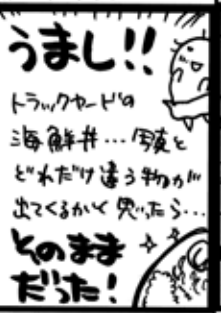 うまし!!
トラックヤードの
海鮮丼…写真と
どれだけ違う物が
出てくるかと思ったら…
そのまま
だった!